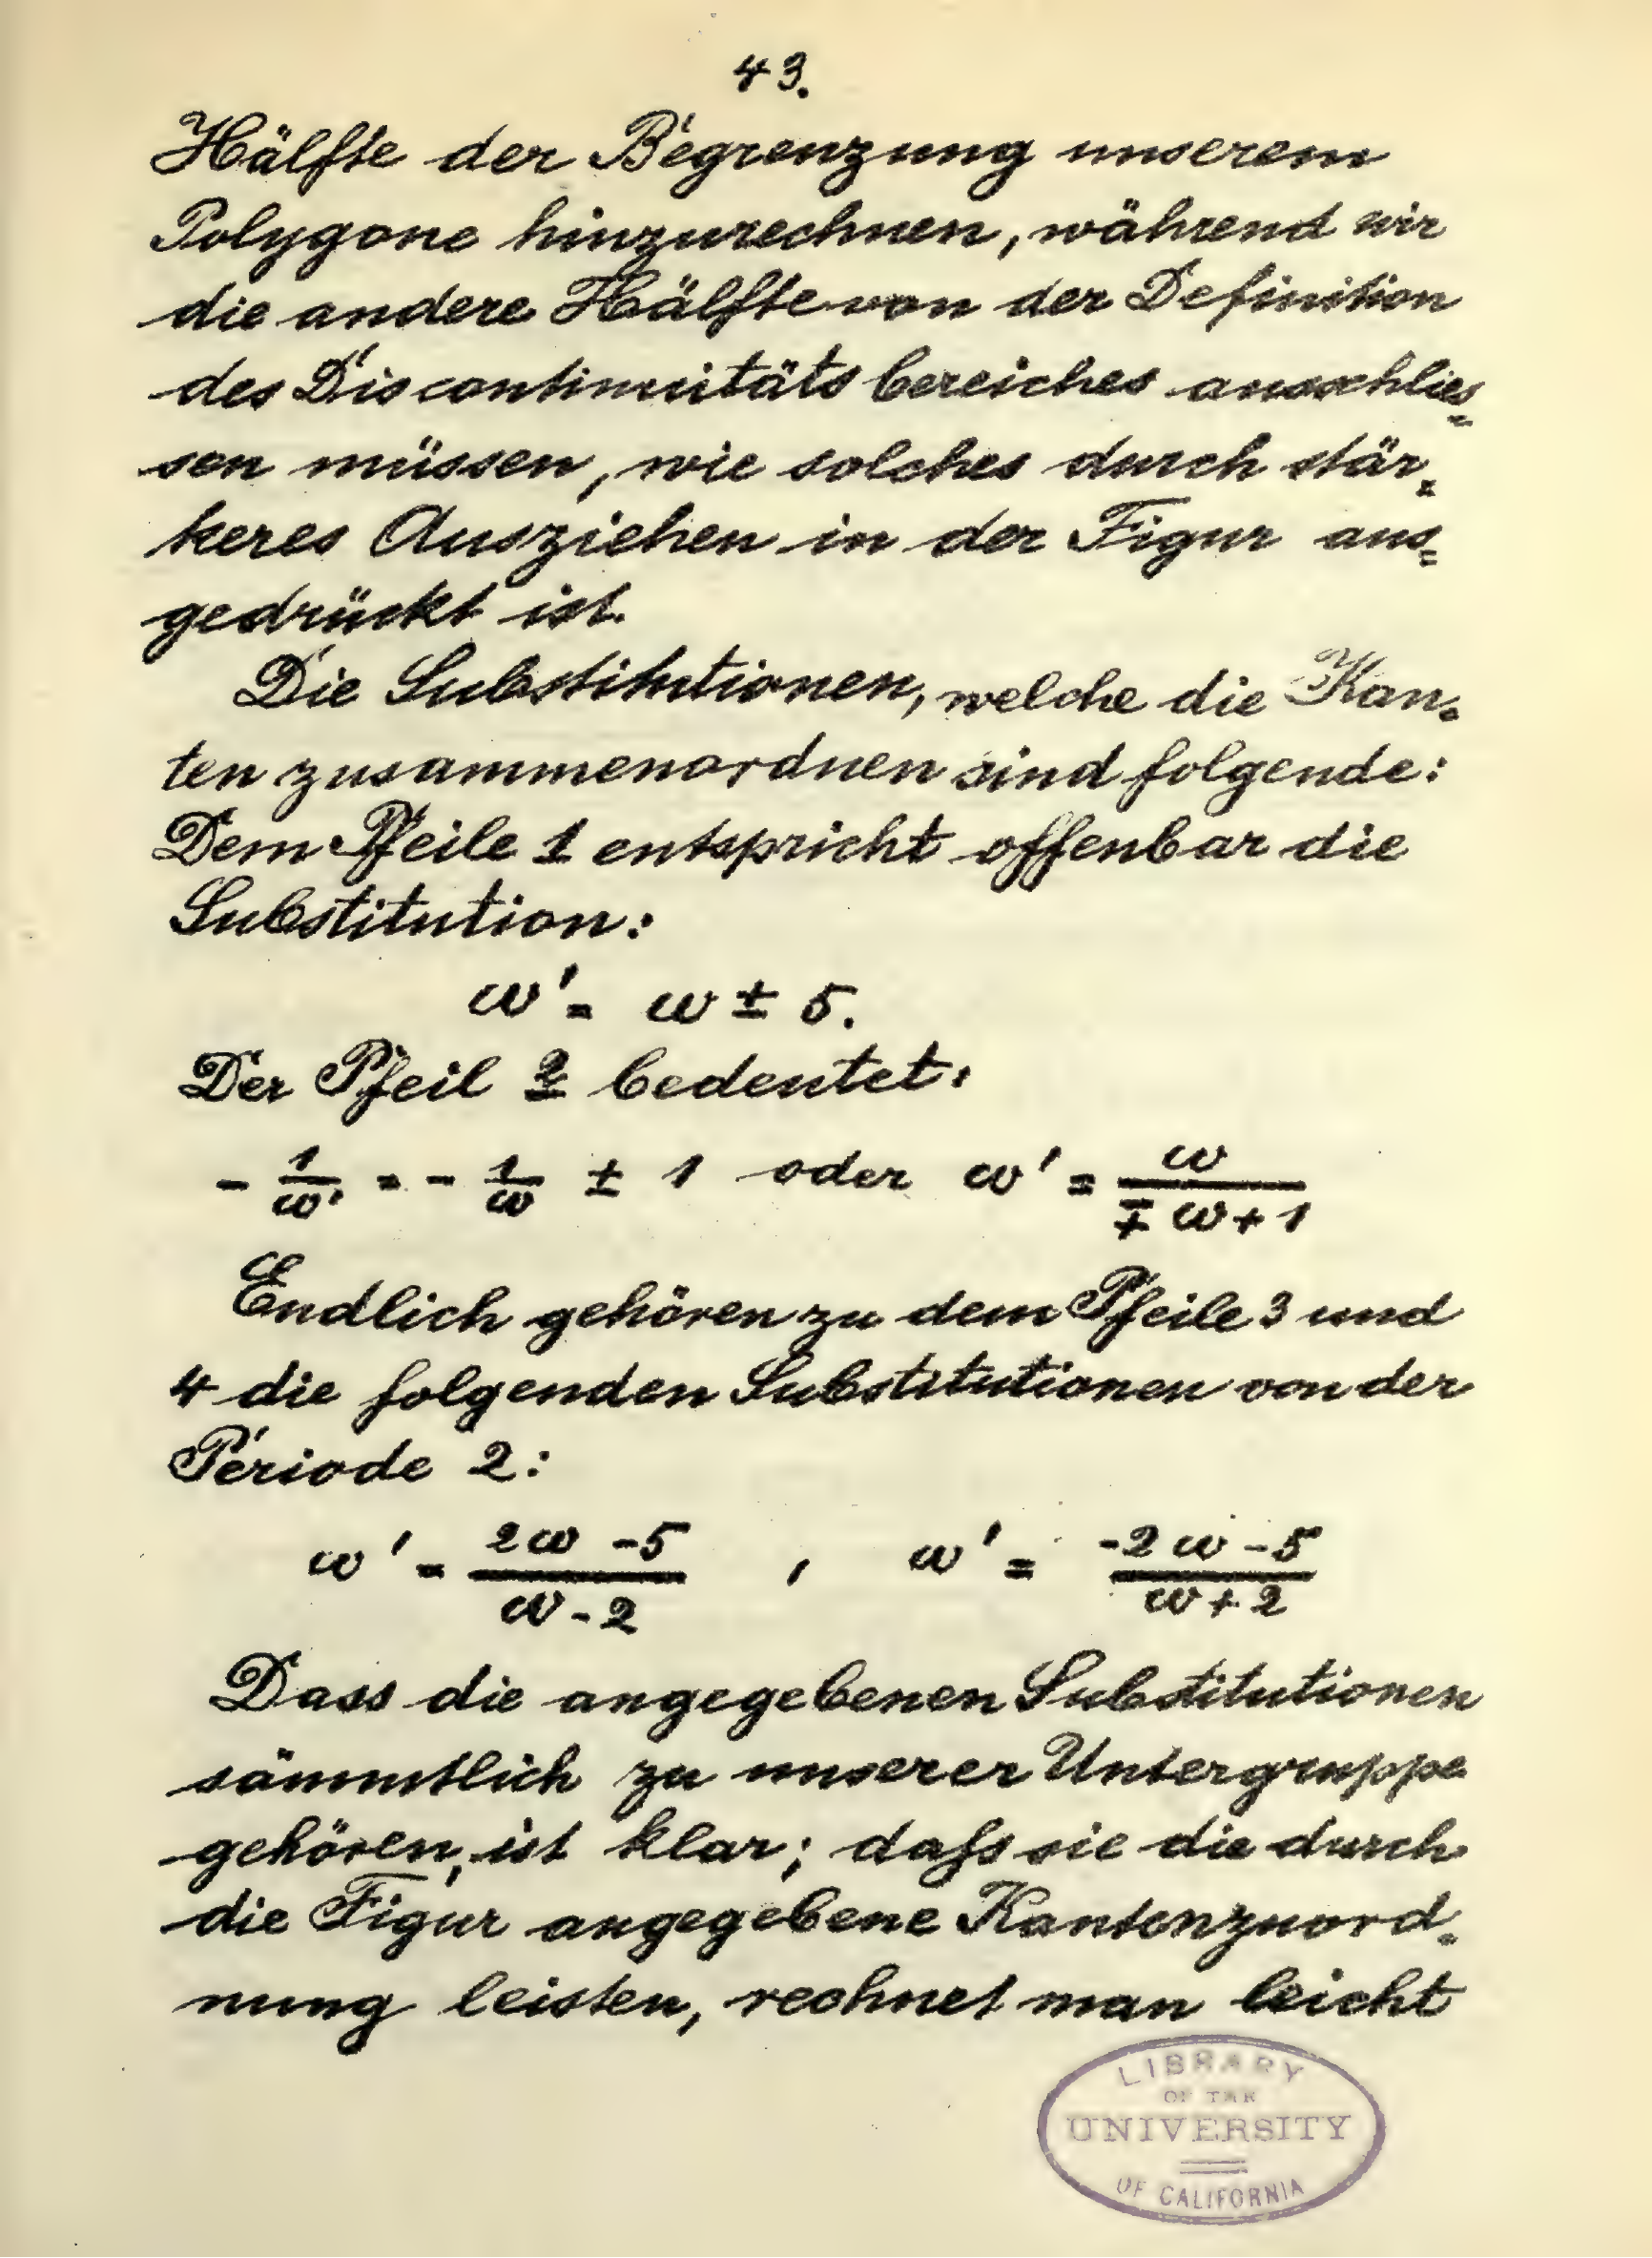 43.
Hälfte der Begrenzung unserem
Polygone hinzurechnen, während wir
die andere Hälfte von der Definition
des Discontinuitätsbereiches ausschlies=
sen müssen, wie solches durch stär=
keres Ausziehen in der Figur aus=
gedrückt ist.
Die Substitutionen, welche die Kan=
ten zusammenordnen sind folgende:
Dem Pfeile 1 entspricht offenbar die
Substitution:
ω' = ω ± 5.
Der Pfeil 2 bedeutet:
- 1/ω' = - 1/ω ± 1 oder ω' = ω/(∓ ω + 1)
Endlich gehören zu dem Pfeile 3 und
4 die folgenden Substitutionen von der
Periode 2:
ω' = (2ω - 5)/(ω - 2) , ω' = (-2ω - 5)/(ω + 2)
Dass die angegebenen Substitutionen
sämmtlich zu unserer Untergruppe
gehören, ist klar; daſs sie die durch
die Figur angegebene Kantenzuord=
nung leisten, rechnet man leicht
LIBRARY
OF THE
UNIVERSITY
OF CALIFORNIA